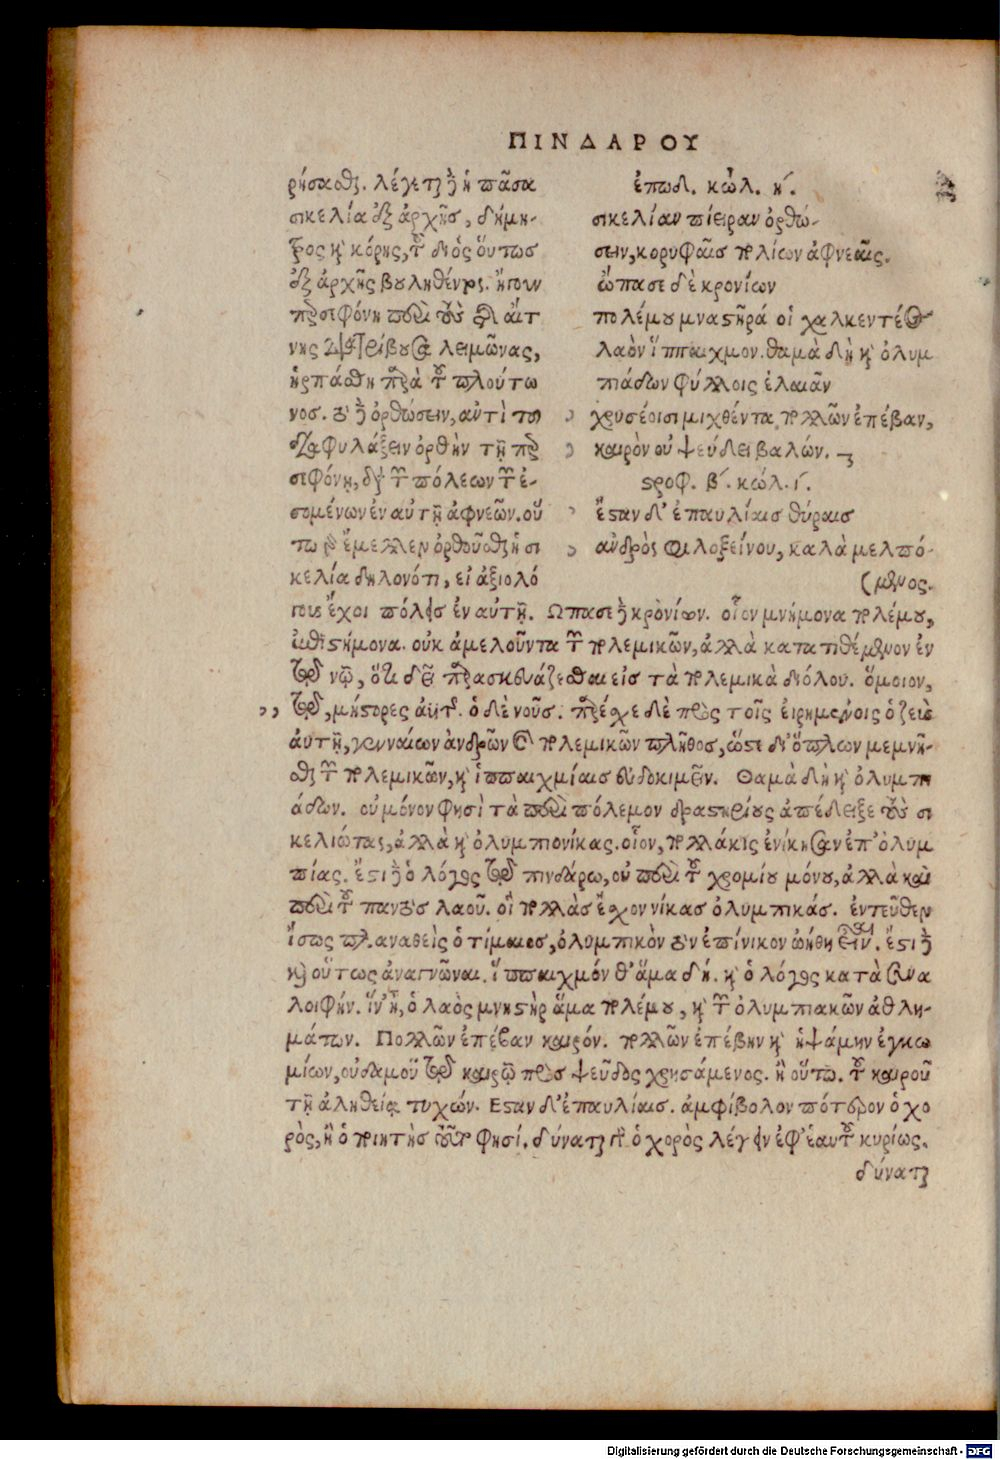 ΠΙΝΔΑΡΟΥ
ρήσασθαι. λέγεται δὲ ἡ πᾶσα
σικελία ἐξ ἀρχῆς, δήμη-
τρος καὶ κόρης, τοῦ διὸς οὕτως
ἐξ ἀρχῆς βουληθέντος. ἤγουν
περσεφόνη περὶ τοὺς ἐν αἴτ
νης διατρίβουσα λειμῶνας,
ἡρπάσθη παρὰ τοῦ πλούτω
νος. τὸ δὲ ὀρθώσειν, ἀντὶ τοῦ
διαφυλάξειν ὀρθὴν τῇ περ
σεφόνῃ, διὰ τῶν πόλεων τῶν ἐ-
σομένων ἐν αὐτῇ ἀφνεῶν. οὕ
τω γὰρ ἔμελλεν ὀρθοῦσθαι ἡ σι
κελία δηλονότι, εἰ ἀξιολό
ἐπωδ. κώλ. η΄.
σικελίαν πίειραν ὀρθώ-
σειν, κορυφαῖς πολίων ἀφνεαῖς.
ὤπασε δὲ κρονίων
πολέμου μναστῆρά οἱ χαλκεντέος
λαὸν ἵππαιχμον. θαμὰ δὴ καὶ ὀλυμ
πιάδων φύλλοις ἐλαιᾶν
χρυσέοισι μιχθέντα πολλῶν ἐπέβαν,
καιρὸν οὐ ψεύδει βαλών.
στροφ. β΄. κώλ. ι΄.
ἔσταν δ' ἐπαυλίαις θύραις
ἀνδρὸς φιλοξείνου, καλὰ μελπό-
(μενος.
γους ἔχοι πόλεις ἐν αὐτῇ. Ωπασε δὲ κρονίων. οἷον μνήμονα πολέμου,
ἐπιστήμονα. οὐκ ἀμελοῦντα τῶν πολεμικῶν, ἀλλὰ κατατιθέμενον ἐν
τῷ νῷ, ὅτι δεῖ παρασκευάζεσθαι εἰς τὰ πολεμικὰ διόλου. ὅμοιον,
τῷ, μήστορες ἀϋτῆς. ὁ δὲ νοῦς. παρέχε δὲ πρὸς τοῖς εἰρημένοις ὁ ζεὺς
αὐτῇ, γενναίων ἀνδρῶν καὶ πολεμικῶν πλῆθος, ὥστε δι' ὅπλων μεμνῆ-
σθαι τῶν πολεμικῶν, καὶ ἱππαιχμίαις εὐδοκιμεῖν. Θαμὰ δὴ καὶ ὀλυμπι
άδων. οὐ μόνον φησὶ τὰ περὶ πόλεμον δραστηρίους ἀπέδειξε τοὺς σι
κελιώτας, ἀλλὰ καὶ ὀλυμπιονίκας. οἷον, πολλάκις ἐνίκησαν ἐπ' ὀλυμ
πίας. ἔστι δὲ ὁ λόγος τῷ πινδάρω, οὐ περὶ τοῦ χρομίου μόνου, ἀλλὰ καὶ
περὶ τοῦ παντὸς λαοῦ. οἳ πολλὰς ἔχον νίκας ὀλυμπικάς. ἐντεῦθεν
ἴσως πλαναθεὶς ὁ τίμαιος, ὀλυμπικὸν τὸν ἐπίνικον ᾠήθη εἶναι. ἔστι δὲ
καὶ οὕτως ἀναγνῶναι. ἵππαιχμόν θ' ἅμα δή. καὶ ὁ λόγος κατὰ συνα
λοιφήν. ἵν' ᾖ, ὁ λαὸς μνηστὴρ ἅμα πολέμου, καὶ τῶν ὀλυμπιακῶν ἀθλη-
μάτων. Πολλῶν ἐπέβαν καιρόν. πολλῶν ἐπέβην καὶ ἡψάμην ἐγκω
μίων, οὐδαμοῦ τῷ καιρῷ πρὸς ψεῦδος χρησάμενος. ἢ οὕτω. τοῦ καιροῦ
τῇ ἀληθείᾳ τυχών. Εσταν δ' ἐπαυλίαις. ἀμφίβολον πότερον ὁ χο
ρὸς, ἢ ὁ ποιητὴς τοῦτό φησί. δύναται γὰρ ὁ χορὸς λέγειν ἐφ' ἑαυτοῦ κυρίως.
δύναται
Digitalisierung gefördert durch die Deutsche Forschungsgemeinschaft - DFG